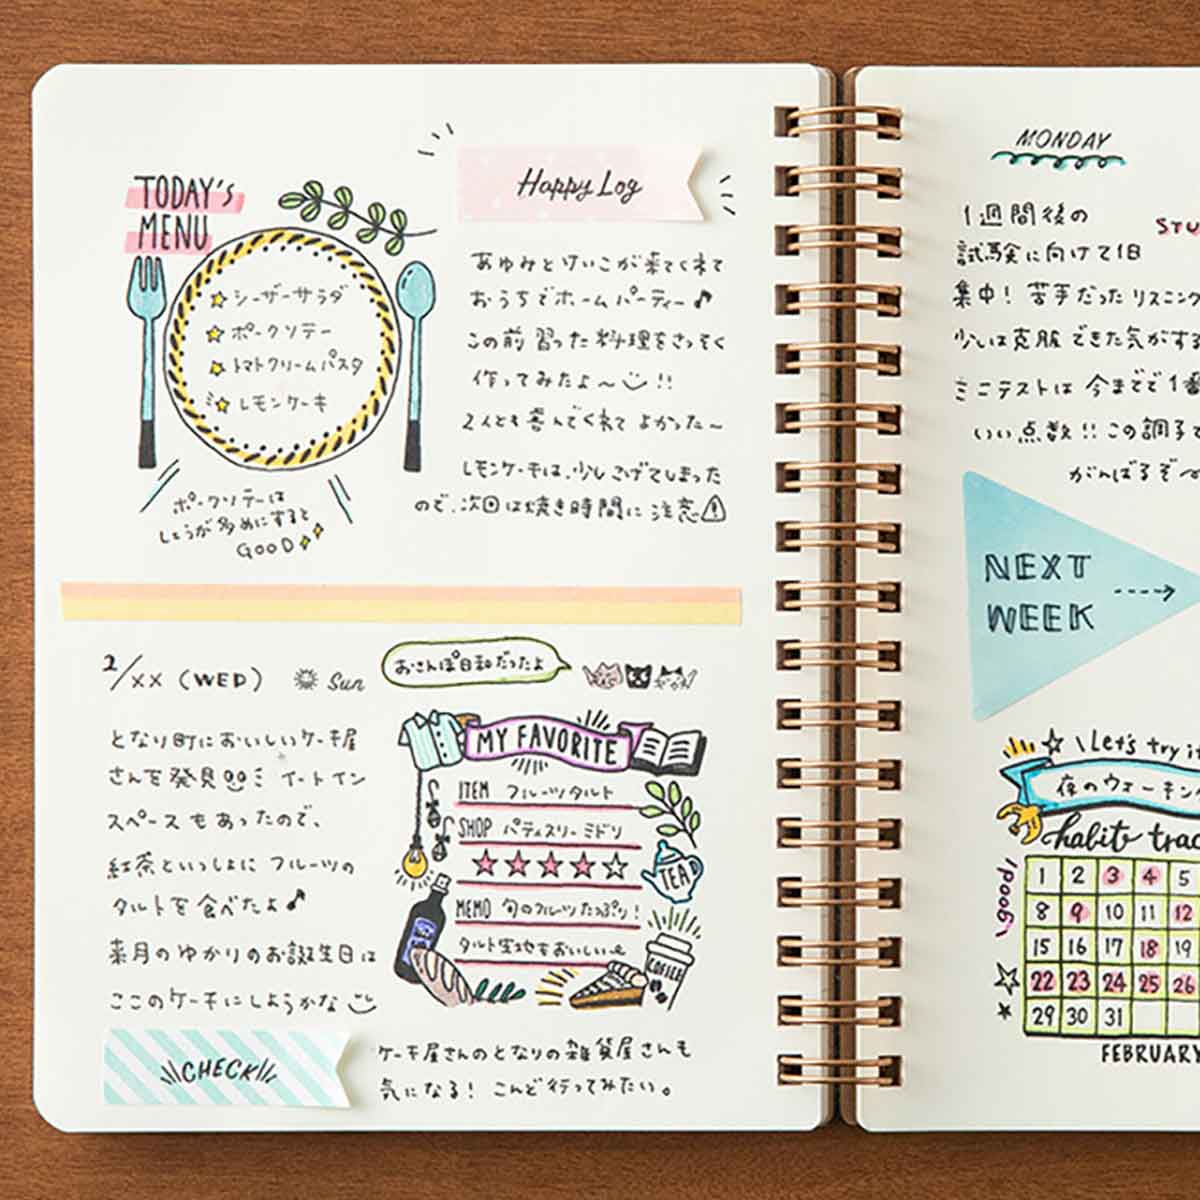 TODAY's
MENU
シーザーサラダ
ポークソテー
トマトクリームパスタ
レモンケーキ
ポークソテーは
しょうが多めにすると
GOOD
Happy Log
あゆみとけいこが来てくれて
おうちでホームパーティー♪
この前習った料理をさっそく
作ってみたよ〜!!
2人とも喜んでくれてよかった〜
レモンケーキは、少しこげてしまった
ので、次回は焼き時間に注意
2/××(WED) Sun
おさんぽ日和だったよ
となり町においしいケーキ屋
さんを発見 イートイン
スペースもあったので、
紅茶といっしょにフルーツの
タルトを食べたよ♪
来月のゆかりのお誕生日は
ここのケーキにしようかな
MY FAVORITE
ITEM フルーツタルト
SHOP パティスリー ミドリ
★★★★☆
TEA
MEMO 旬のフルーツたっぷり!
タルト生地もおいしい
COFFEE
CHECK
ケーキ屋さんのとなりの雑貨屋さんも
気になる! こんど行ってみたい。
MONDAY
1週間後の
試験に向けて1日
集中! 苦手だったリスニング
少しは克服できた気がする
ミニテストは今までで1番
いい点数!!この調子で
がんばるぞ〜
STU
NEXT
WEEK
Let's try it
夜のウォーキング
habits trac
Good
1 2 3 4 5
8 9 10 11 12
15 16 17 18 19
22 23 24 25 26
29 30 31
FEBRUARY